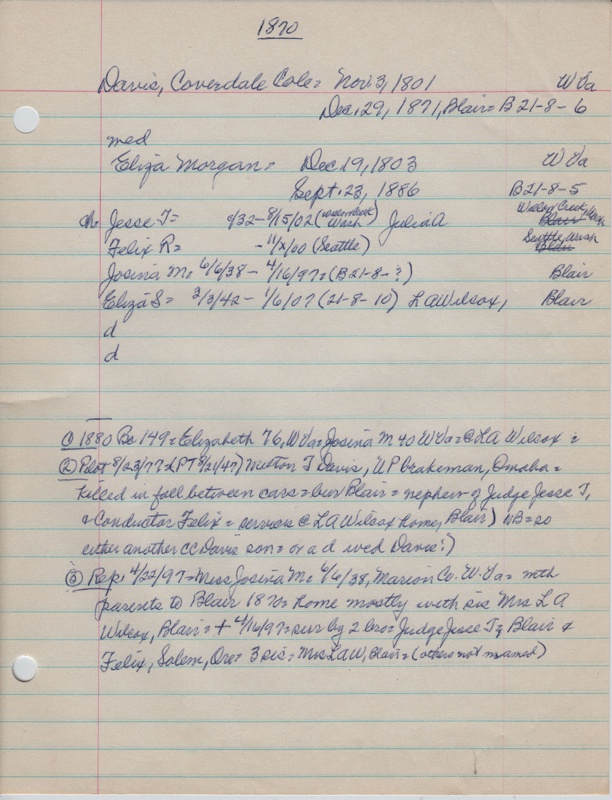 1870
Davis, Coverdale Cole = Nov. 3, 1801 W Va
Dec. 29, 1871, Blair = B 21-8-6
med
Eliza Morgan = Dec 19, 1803 W Va
Sept. 23, 1886 B21-8-5
Ch. Jesse T = /32 - 8/15/02 ( Wash) Julia A Willow Creek, Wash
Felix R = - 11/x/00 (Seattle) Seattle, Wash
Josina M = 6/6/38 - 4/16/97 = (B21-8-?) Blair
Eliza S = 2/3/42 - 1/6/07 (21-8-10) L A Wilcox, Blair
d
d
① 1880 Bc 149 = Elizabeth 76, W Va = Josina M 40 W Va = @ L A Wilcox =
② Pilot 8/23/77 & (PT 8/21/47) T Davis, UP Brakeman, Omaha =
killed in fall between cars = bur Blair = nephew of Judge Jesse T,
& Conductor Felix = services @ L A Wilcox home, Blair) NB = so
either another CC Davis son = or a d wed Davis?)
③ Rep. 4/22/97 = Miss Josina M = 6/6/38, Marion Co. W. Va = with
parents to Blair 1870 = home mostly with sis Mrs L A
Wilcox, Blair = + 4/16/97 = sur by 2 bro = Judge Jesse T, Blair &
Felix, Salem, Ore = 3 sis = Mrs LAW, Blair = (others not named)